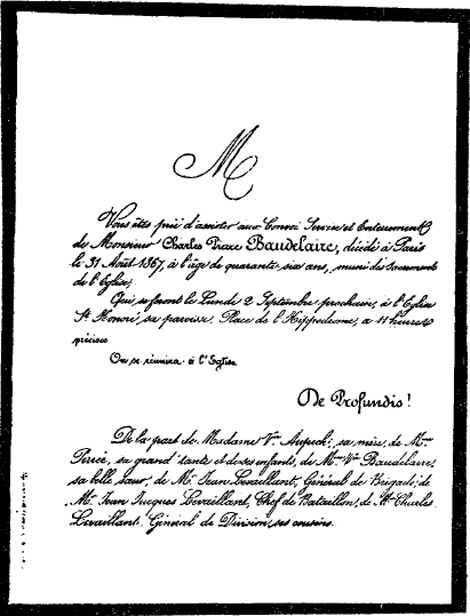 M
Vous êtes prié d'assister aux Convoi Service et Enterrement
de Monsieur Charles Pierre Baudelaire, décédé à Paris
le 31 Août 1867, à l'âge de quarante six ans, muni des Sacrements
de l'Église,
Qui se feront le Lundi 2 Septembre prochain, à l'Église
St Honoré, sa paroisse, Place de l'Hippodrome, à 11 heures
précises
On se réunira à l'Église
De Profundis!
De la part de Madame Vve Aupick, sa mère, de Mme
sa grand'tante et de ses enfants, de Mme Vve Baudelaire,
sa belle sœur, de Mr Jean Levaillant, Général de Brigade, de
Mr Jean Jacques Levaillant, Chef de Bataillon, de Mr Charles
Levaillant, Général de Division, ses cousins.